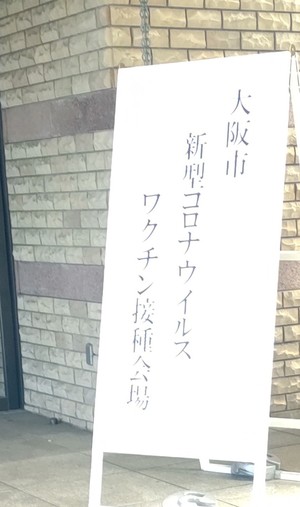 大阪市
新型コロナウイルス
ワクチン接種会場